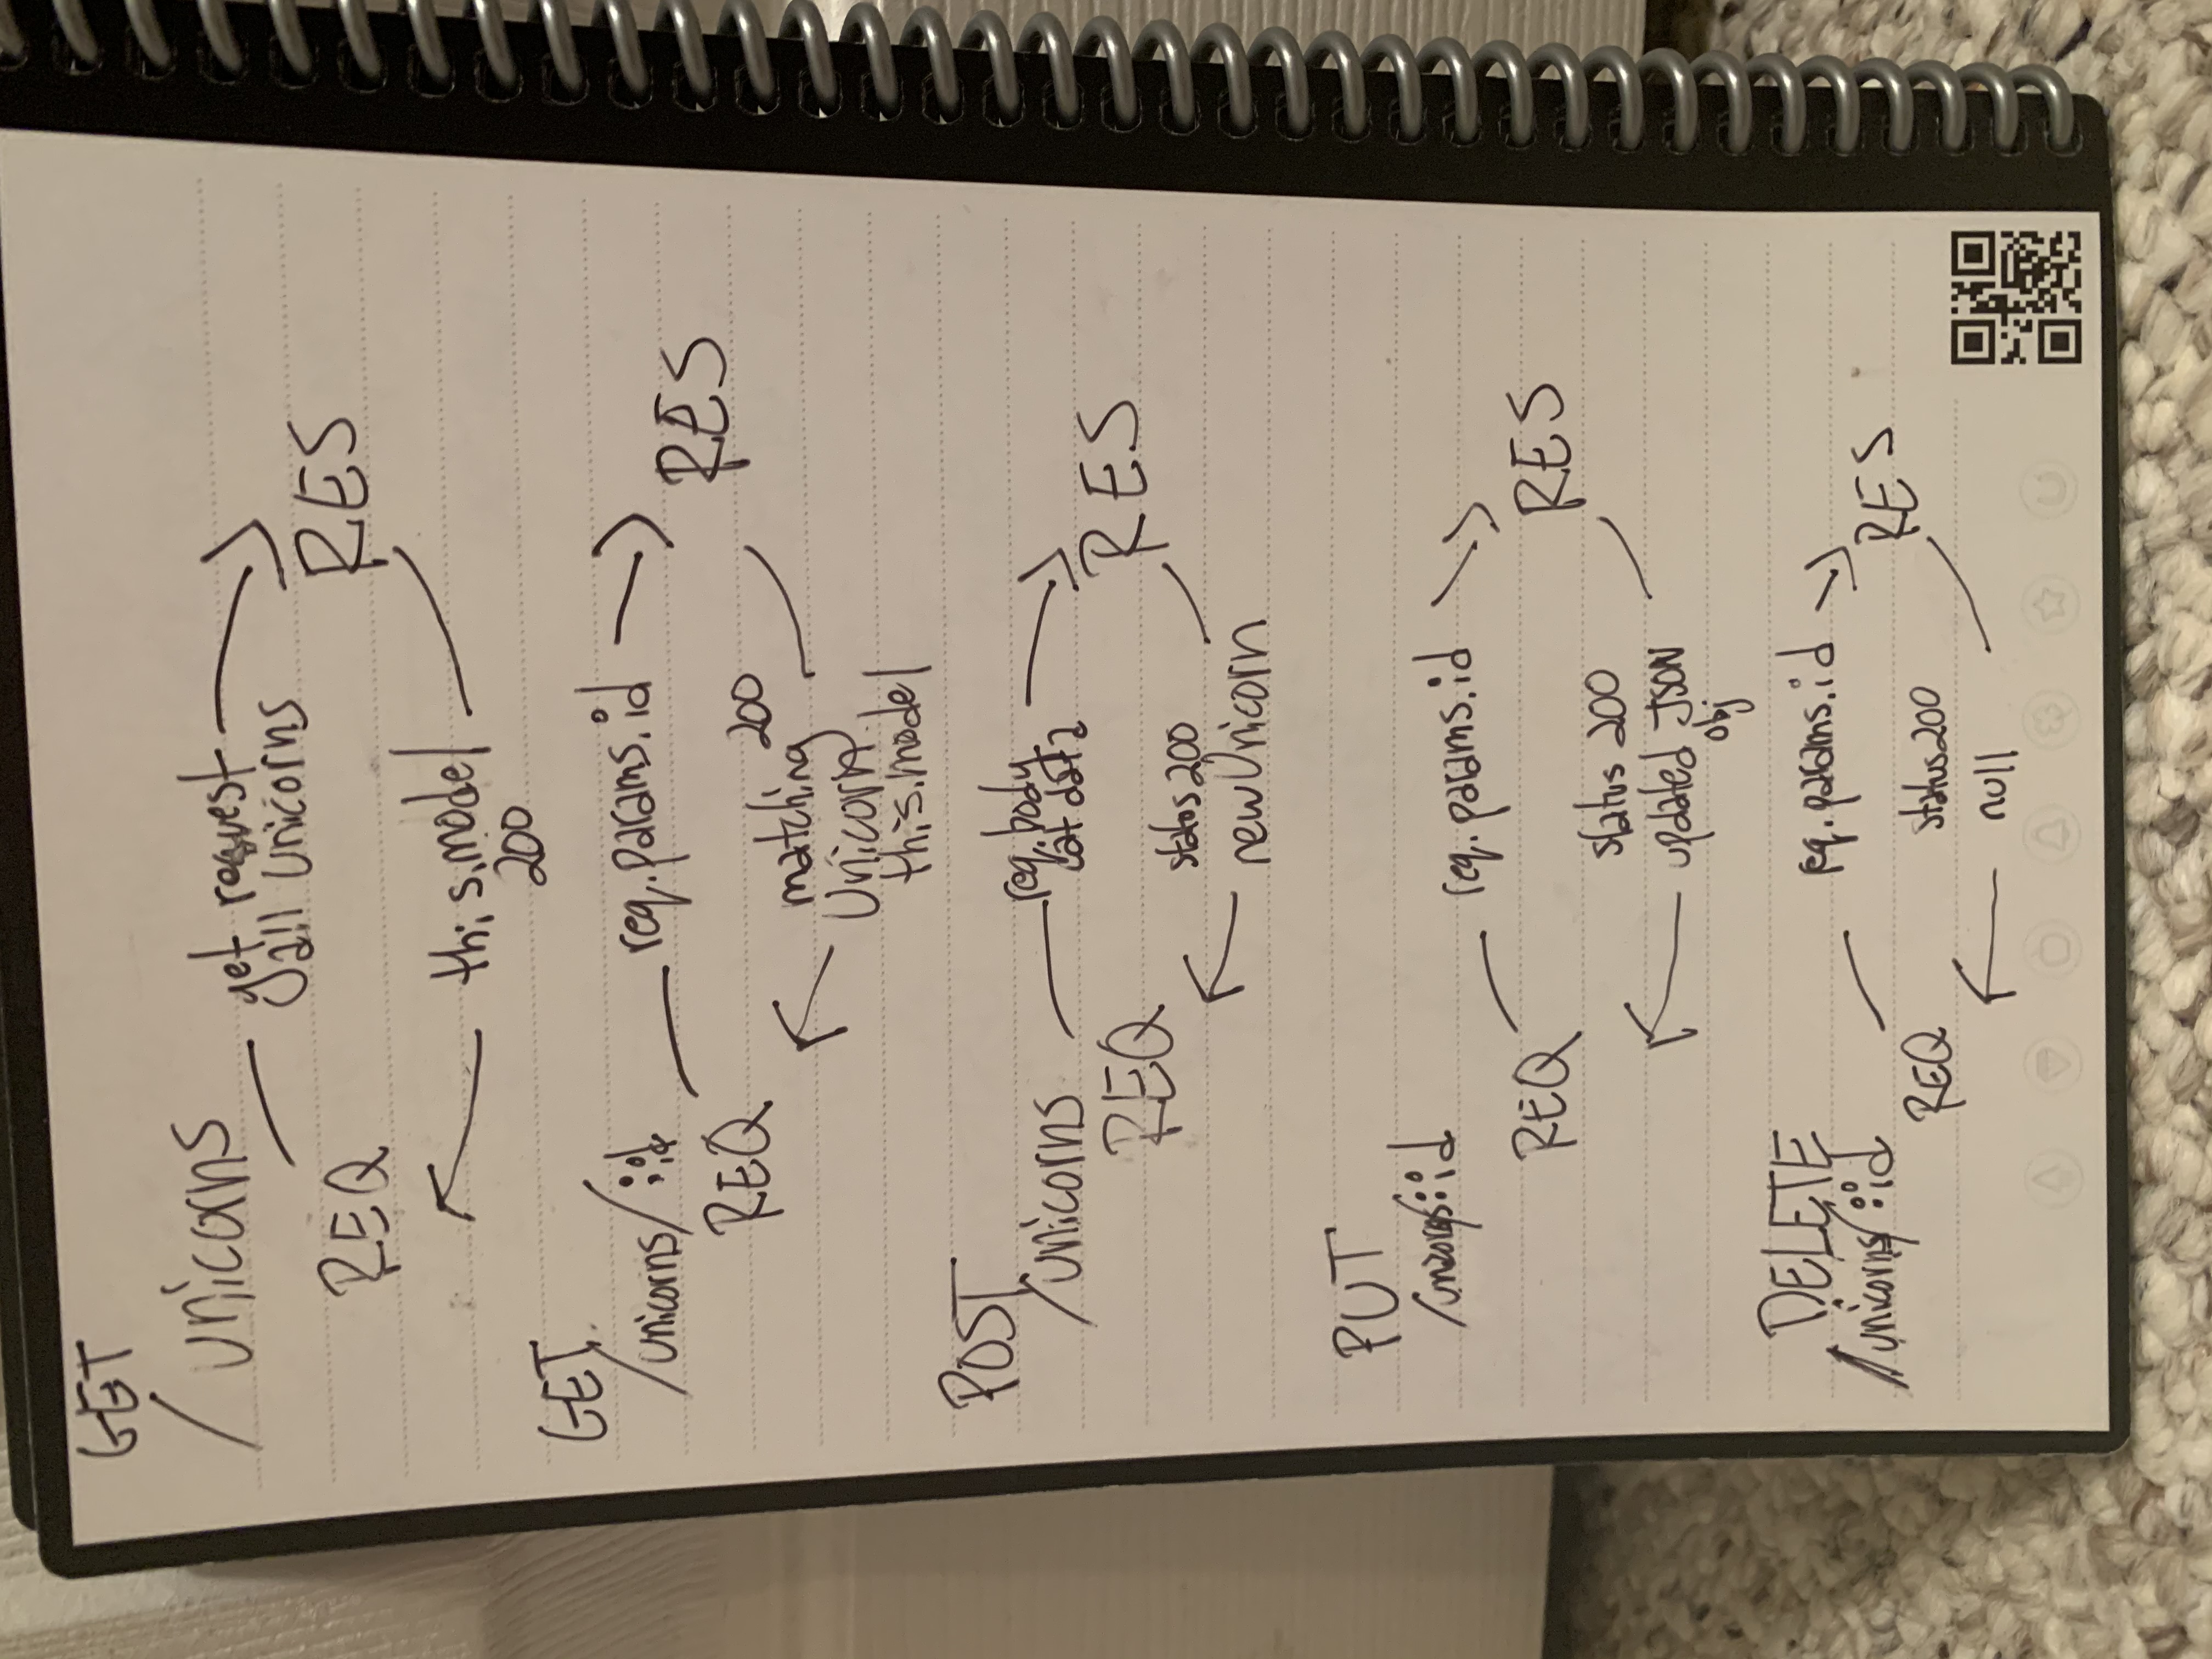 GET
/unicorns
get request
all Unicorns
REQ
RES
this.model
200
GET
/unicorns/:id
req.params.id
REQ
RES
200
matching
Unicorn
this.model
POST
/unicorns
req.body
cat data
REQ
RES
status 200
newUnicorn
PUT
/unicorns/:id
req.params.id
REQ
RES
status 200
updated JSON
obj
DELETE
/unicorns/:id
req.params.id
REQ
RES
status 200
null